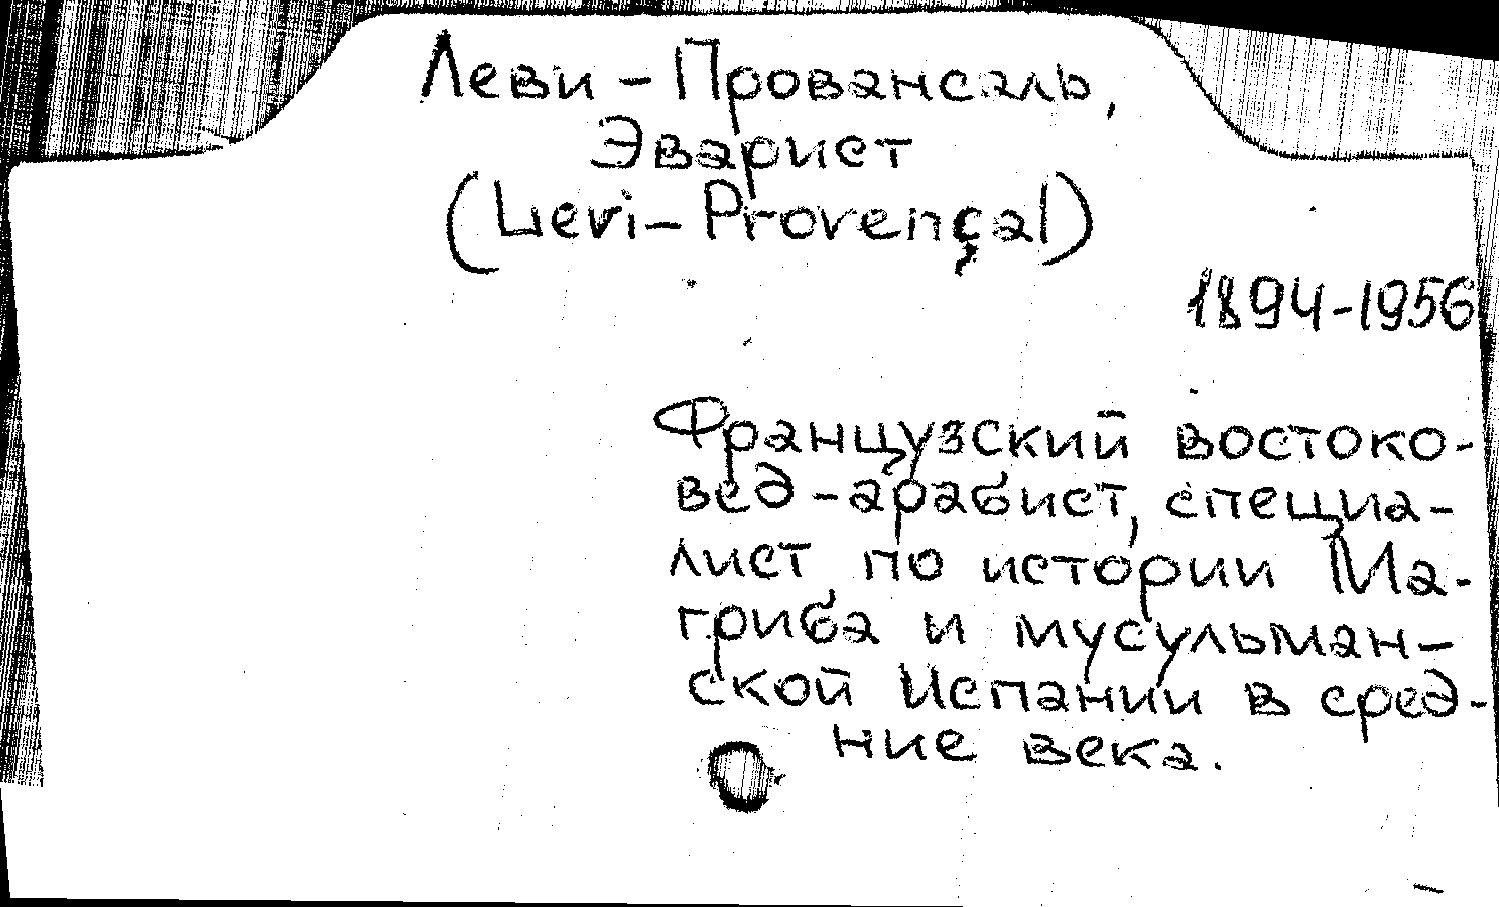 Леви-Провансаль,
Эварист
(Levi-Provençal)
1894-1956
Французский востоко-
вед-арабист, специа-
лист по истории Ма-
гриба и мусульман-
ской Испании в сред-
ние века.